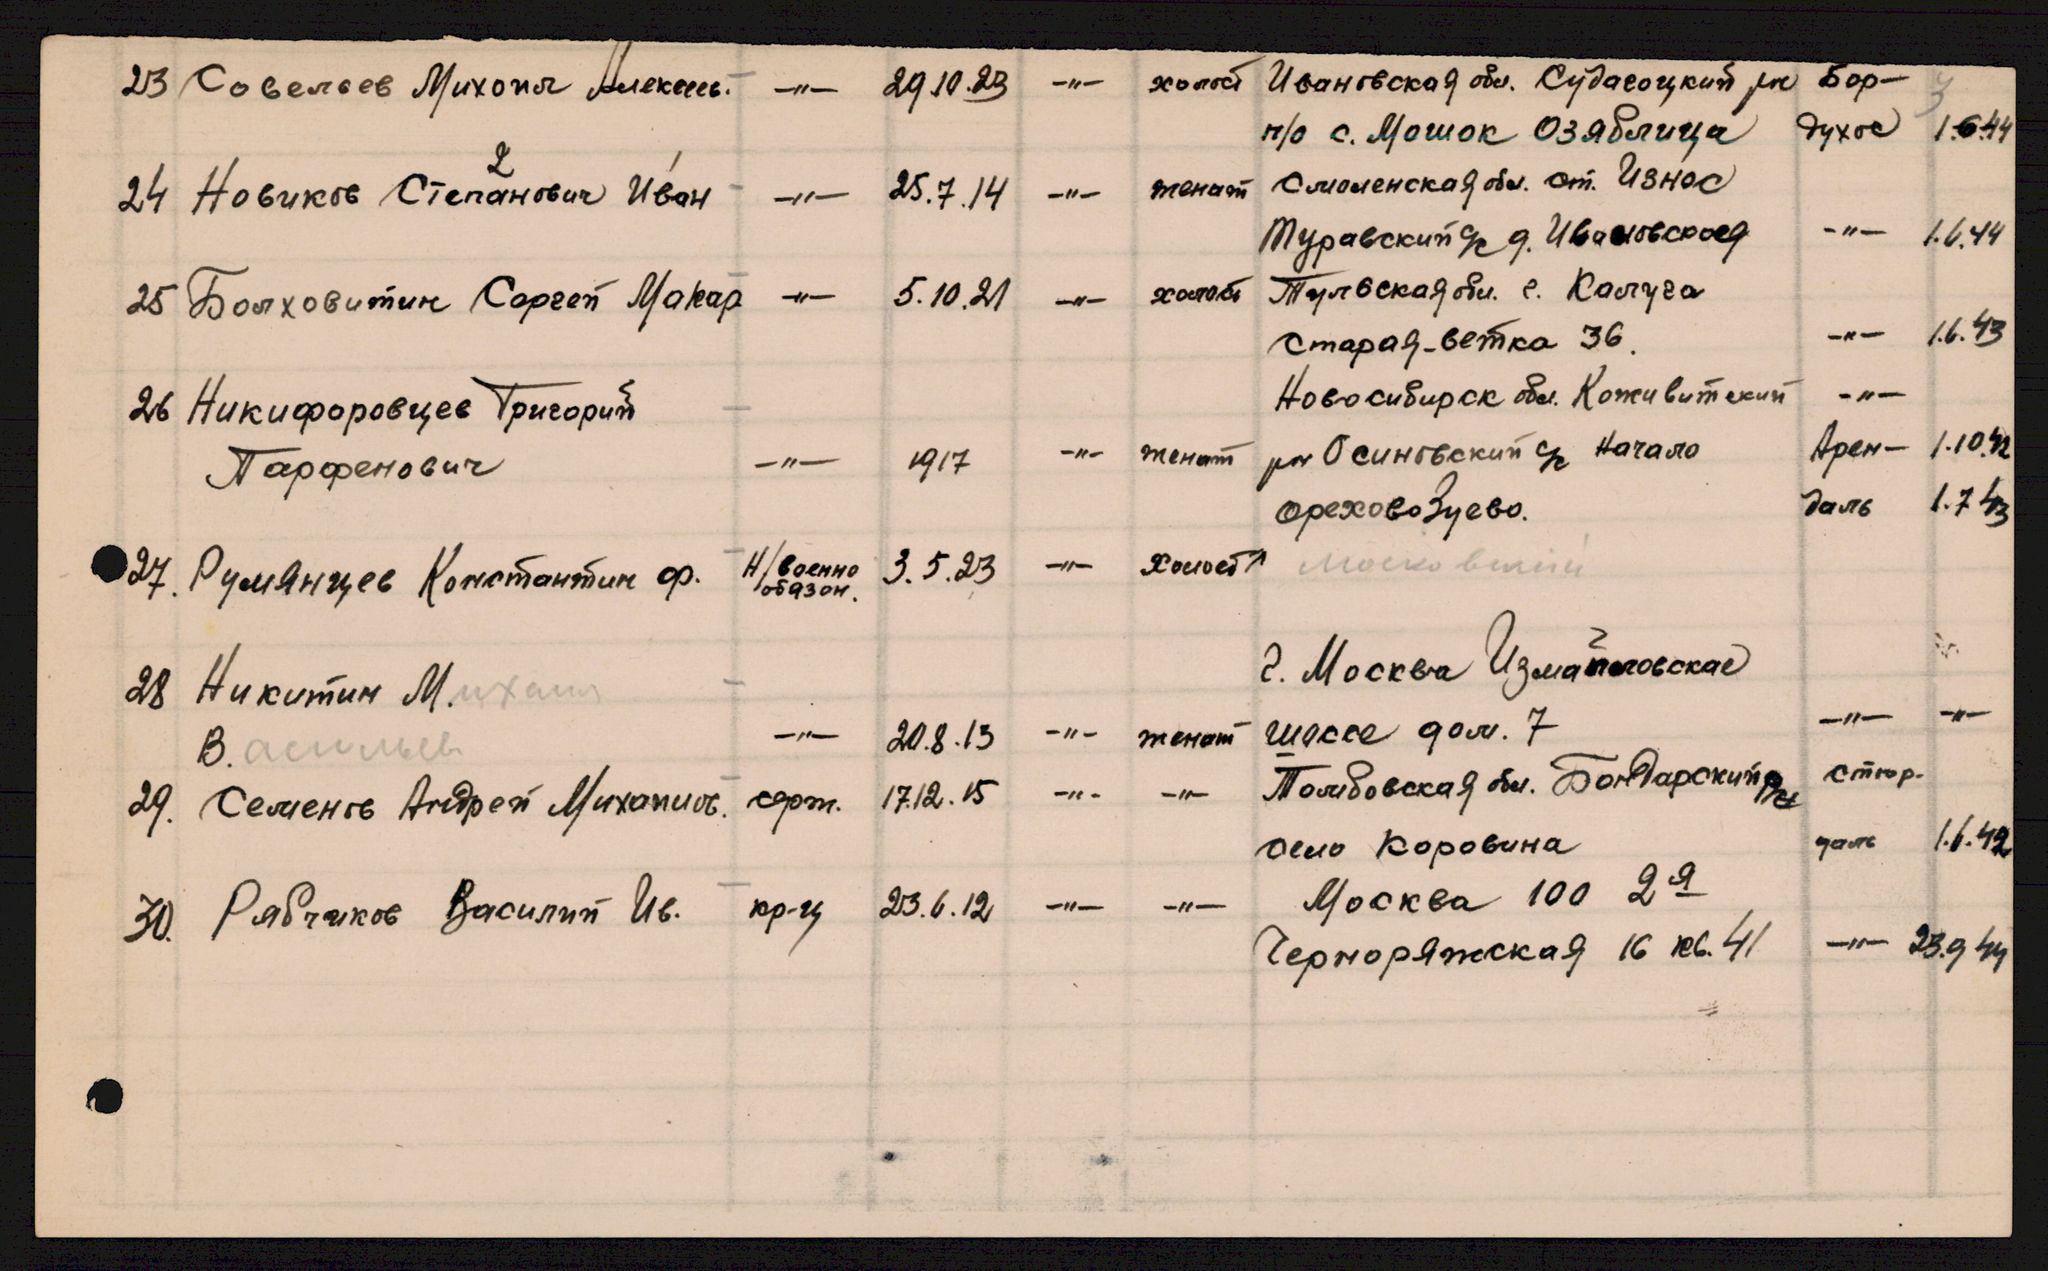 23 Совельев Михоил Алексеев. —"— 29.10.23 —"— холост Ивановская обл. Судогоцкий рн Бор-
п/о с. Мошок Озяблица духос 1.6.44
2
24 Новиков Степанович Иван —"— 25.7.14 —"— женат Смоленская обл. ст. Износ
Туравский с/с д. Ивановская —"— 1.6.44
25 Болховитин Сергей Макар —"— 5.10.21 —"— холост Тульская обл. г. Калуга
Старая-ветка 36. —"— 1.6.43
26 Никифоровцев Григорий Новосибирск обл. Кожевитский —"—
Парфенович —"— 1917 —"— женат рн Осиновский с/с Начало Арен- 1.10.42
Орехово Зуево. даль 1.7.43
27. Румянцев Константин Ф. Н/военно обязан. 3.5.23 —"— холост Московский
28 Никитин Михаил г. Москва Измайловская
Васильев —"— 20.8.13 —"— женат шоссе дом. 7 —"— —"—
29. Семенов Андрей Михайлов. серж. 17.12.15 —"— —"— Томбовская обл. Бондарский рн Стюр-
село Коровина даль 1.6.42
30. Рябчиков Василий Ив. кр-ц 23.6.12 —"— —"— Москва 100 2я
Черноряжская 16 кв. 41 —"— 23.9.44